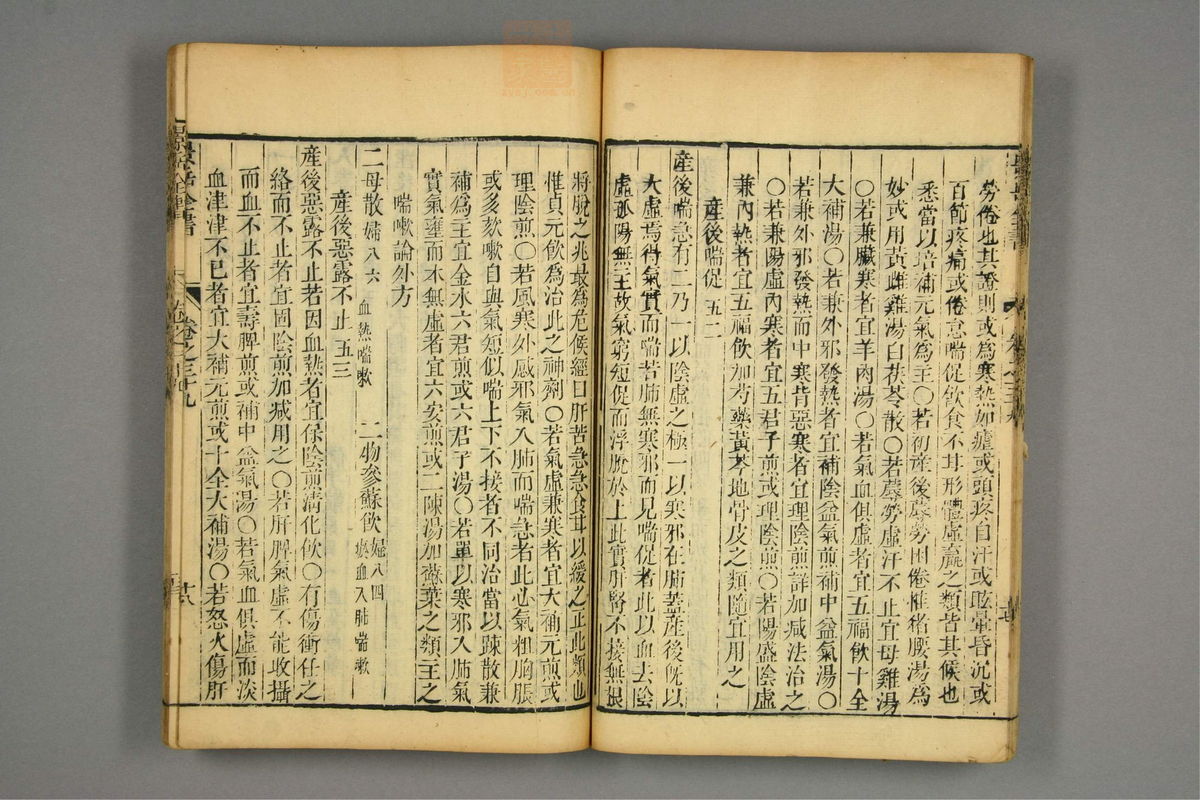 勞倦也其證則或為寒熱如瘧或頭疼自汗或眩暈昏沉或
百節疼痛或倦怠喘促飲食不甘形體虛羸之類皆其候也
悉當以培補元氣為主〇若初産後蓐勞困倦惟猪腰湯為
妙或用黃雌雞湯白茯苓散〇若蓐勞虛汗不止宜母雞湯
〇若兼臟寒者宜羊肉湯〇若氣血俱虛者宜五福飲十全
大補湯〇若兼外邪發熱者宜補陰益氣煎補中益氣湯〇
若兼外邪發熱而中寒背惡寒者宜理陰煎詳加減法治之
〇若兼陽虛內寒者宜五君子煎或理陰煎〇若陽盛陰虛
兼內熱者宜五福飲加芍藥黃芩地骨皮之類隨宜用之
産後喘促 五二
産後喘急有二乃一以陰虛之極一以寒邪在肺蓋産後既以
大虛焉得氣實而喘若肺無寒邪而見喘促者此以血去陰
虛孤陽無主故氣窮短促而浮脫於上此實肝腎不接無根
將脫之兆最為危候經曰肝苦急急食甘以緩之正此類也
惟貞元飲為治此之神劑〇若氣虛兼寒者宜大補元煎或
理陰煎〇若風寒外感邪氣入肺而喘急者此必氣粗胸脹
或多欬嗽自與氣短似喘上下不接者不同治當以踈散兼
補為主宜金水六君煎或六君子湯〇若單以寒邪入肺氣
實氣壅而本無虛者宜六安煎或二陳湯加蘇葉之類主之
喘嗽論外方
二母散 婦八六 血熱喘嗽 二物參蘇飲 婦八四 瘀血入肺喘嗽
産後惡露不止 五三
産後惡露不止若因血熱者宜保陰煎清化飲〇有傷衝任之
絡而不止者宜固陰煎加減用之〇若肝脾氣虛不能收攝
而血不止者宜壽脾煎或補中益氣湯〇若氣血俱虛而淡
血津津不已者宜大補元煎或十全大補湯〇若怒火傷肝
景岳全書
卷之三十九
廿八